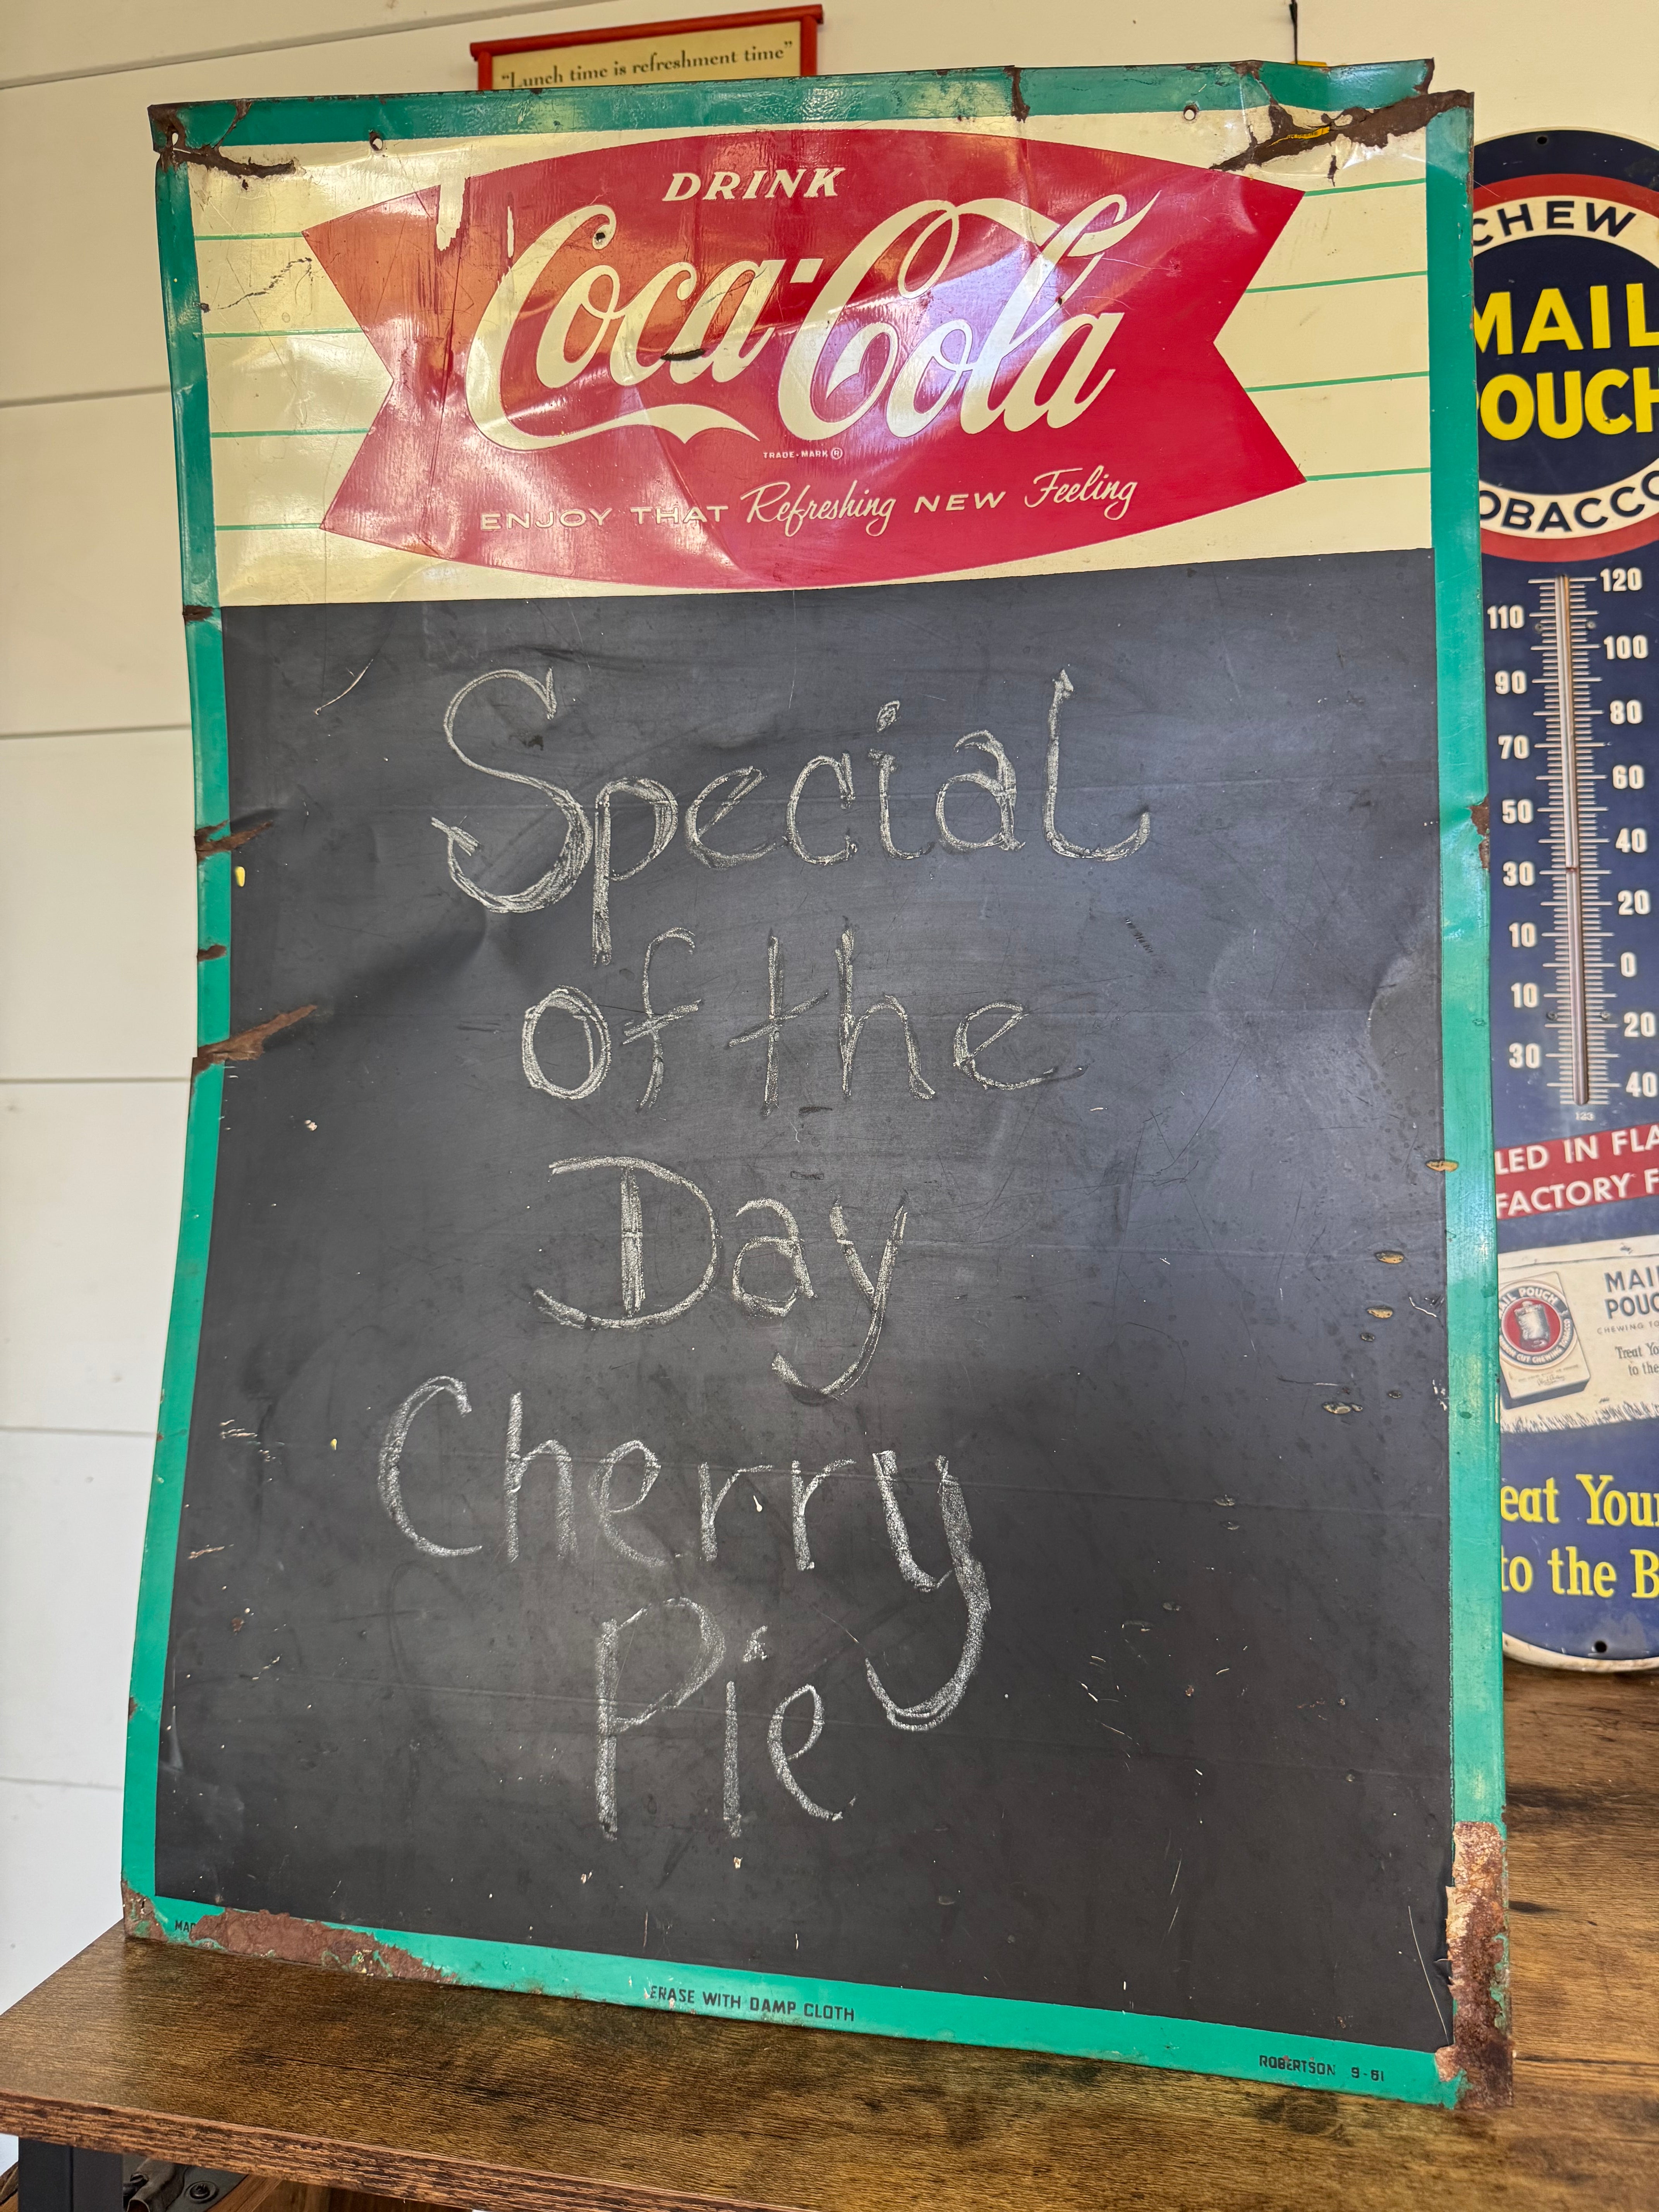 "Lunch time is refreshment time"
DRINK
Coca-Cola
TRADE-MARK ®
ENJOY THAT Refreshing NEW Feeling
Special
of the
Day
Cherry
Pie
ERASE WITH DAMP CLOTH
ROBERTSON 9-61
CHEW
MAIL
POUCH
TOBACCO
120
110
100
90
80
70
60
50
40
30
20
10
0
10
20
30
40
133
LED IN FLA
FACTORY F
MAIL POUCH
MAI
POUC
CHEWING TO
Treat Yo
to the
eat Your
to the B